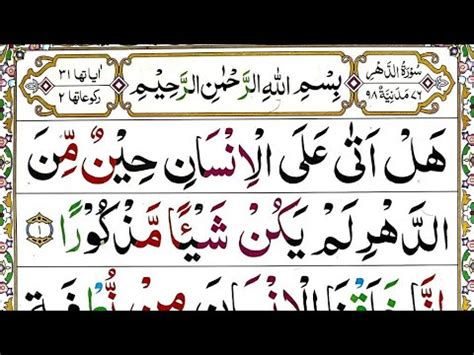 سُوْرَةُ الدَّهْرِ
٧٦ مَدَنِيَّةٌ ٩٨
بِسْمِ اللهِ الرَّحْمٰنِ الرَّحِيْمِ
اٰيَاتُهَا ٣١
رُكُوْعَاتُهَا ٢
هَلْ اَتٰى عَلَى الْاِنْسَانِ حِيْنٌ مِّنَ
الدَّهْرِ لَمْ يَكُنْ شَيْـًٔا مَّذْكُوْرًا ١
اِنَّا خَلَقْنَا الْاِنْسَانَ مِنْ نُّطْفَةٍ